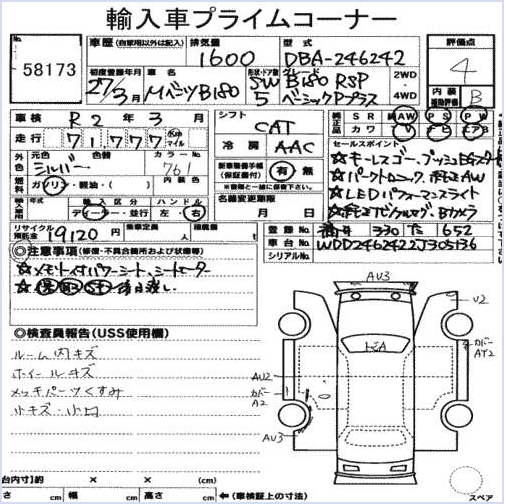 輸入車プライムコーナー
No.
58173
車歴 (自家用以外は記入)
排気量
1600
型式
DBA-246242
評価点
4
内装
補助評価
B
初度登録年月
27/3月
車名
Mベンツ B180
形状・ドア数
SW
5
B180 RSP
ベーシックPプラス
2WD
4WD
車検
R2年3月
走行
71,777
km
マイル
シフト
CAT
冷房
AAC
純正品
SR
AW
PS
PW
カワ
TV
ナビ
エアB
外色
元色
色替
カラーNo.
シルバー
761
燃料
ガソリン・軽油・( )
内装色
新車整備手帳
(保証書付)
有・無
※書類と一緒に保管下さい。
輸入車
年式
輸入区分
ディーラー・並行
ハンドル
左・右
名義変更期限
月 日
セールスポイント
☆キーレスゴー、プッシュスタート
☆パークトロニック、純正AW
☆LEDパフォーマンスライト
☆純正ナビフルセグ、Bカメラ
リサイクル
預託金
19120円
乗車定員
人
登録No.
330
652
車台No.
WDD2462422J305136
シリアルNo.
◎注意事項(修復・不具合箇所および状態等)
☆メモリー付パワーシート、シートヒーター
☆保・取・SK後日渡し
◎検査員報告(USS使用欄)
ルーム内キズ
ホイールキズ
メッキパーツくすみ
小キズ・小凹
AU3
U2
トビA
カバー
AT2
AU2
カバー
A2
AU3
荷台内寸)約
×
×
(cm)
長さ
cm
幅
cm
高さ
cm
←(車検証上の寸法)
スペア